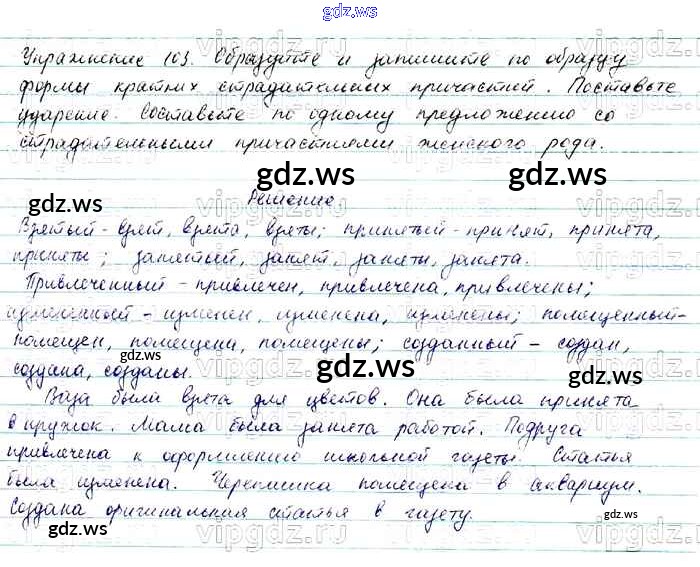 gdz.ws
Упражнение 103. Образуйте и запишите по образцу
формы кратких страдательных причастий. Поставьте
ударение. Составьте по одному предложению со
страдательными причастиями женского рода.
gdz.ws gdz.ws
gdz.ws Решение
Взятый - взят, взята, взяты; принятый - принят, принята,
приняты; занятый, занят, заняты, занята.
Привлеченный - привлечен, привлечена, привлечены;
измененный - изменен, изменена, изменены; помещенный-
помещен, помещена, помещены; созданный - создан,
gdz.ws gdz.ws
создана, созданы.
Ваза была взята для цветов. Она была принята
в кружок. Мама была занята работой. Подруга
привлечена к оформлению школьной газеты. Статья
была изменена. Черепашка помещена в аквариум.
Создана оригинальная статья в газету.
gdz.ws gdz.ws
vipgdz.ws